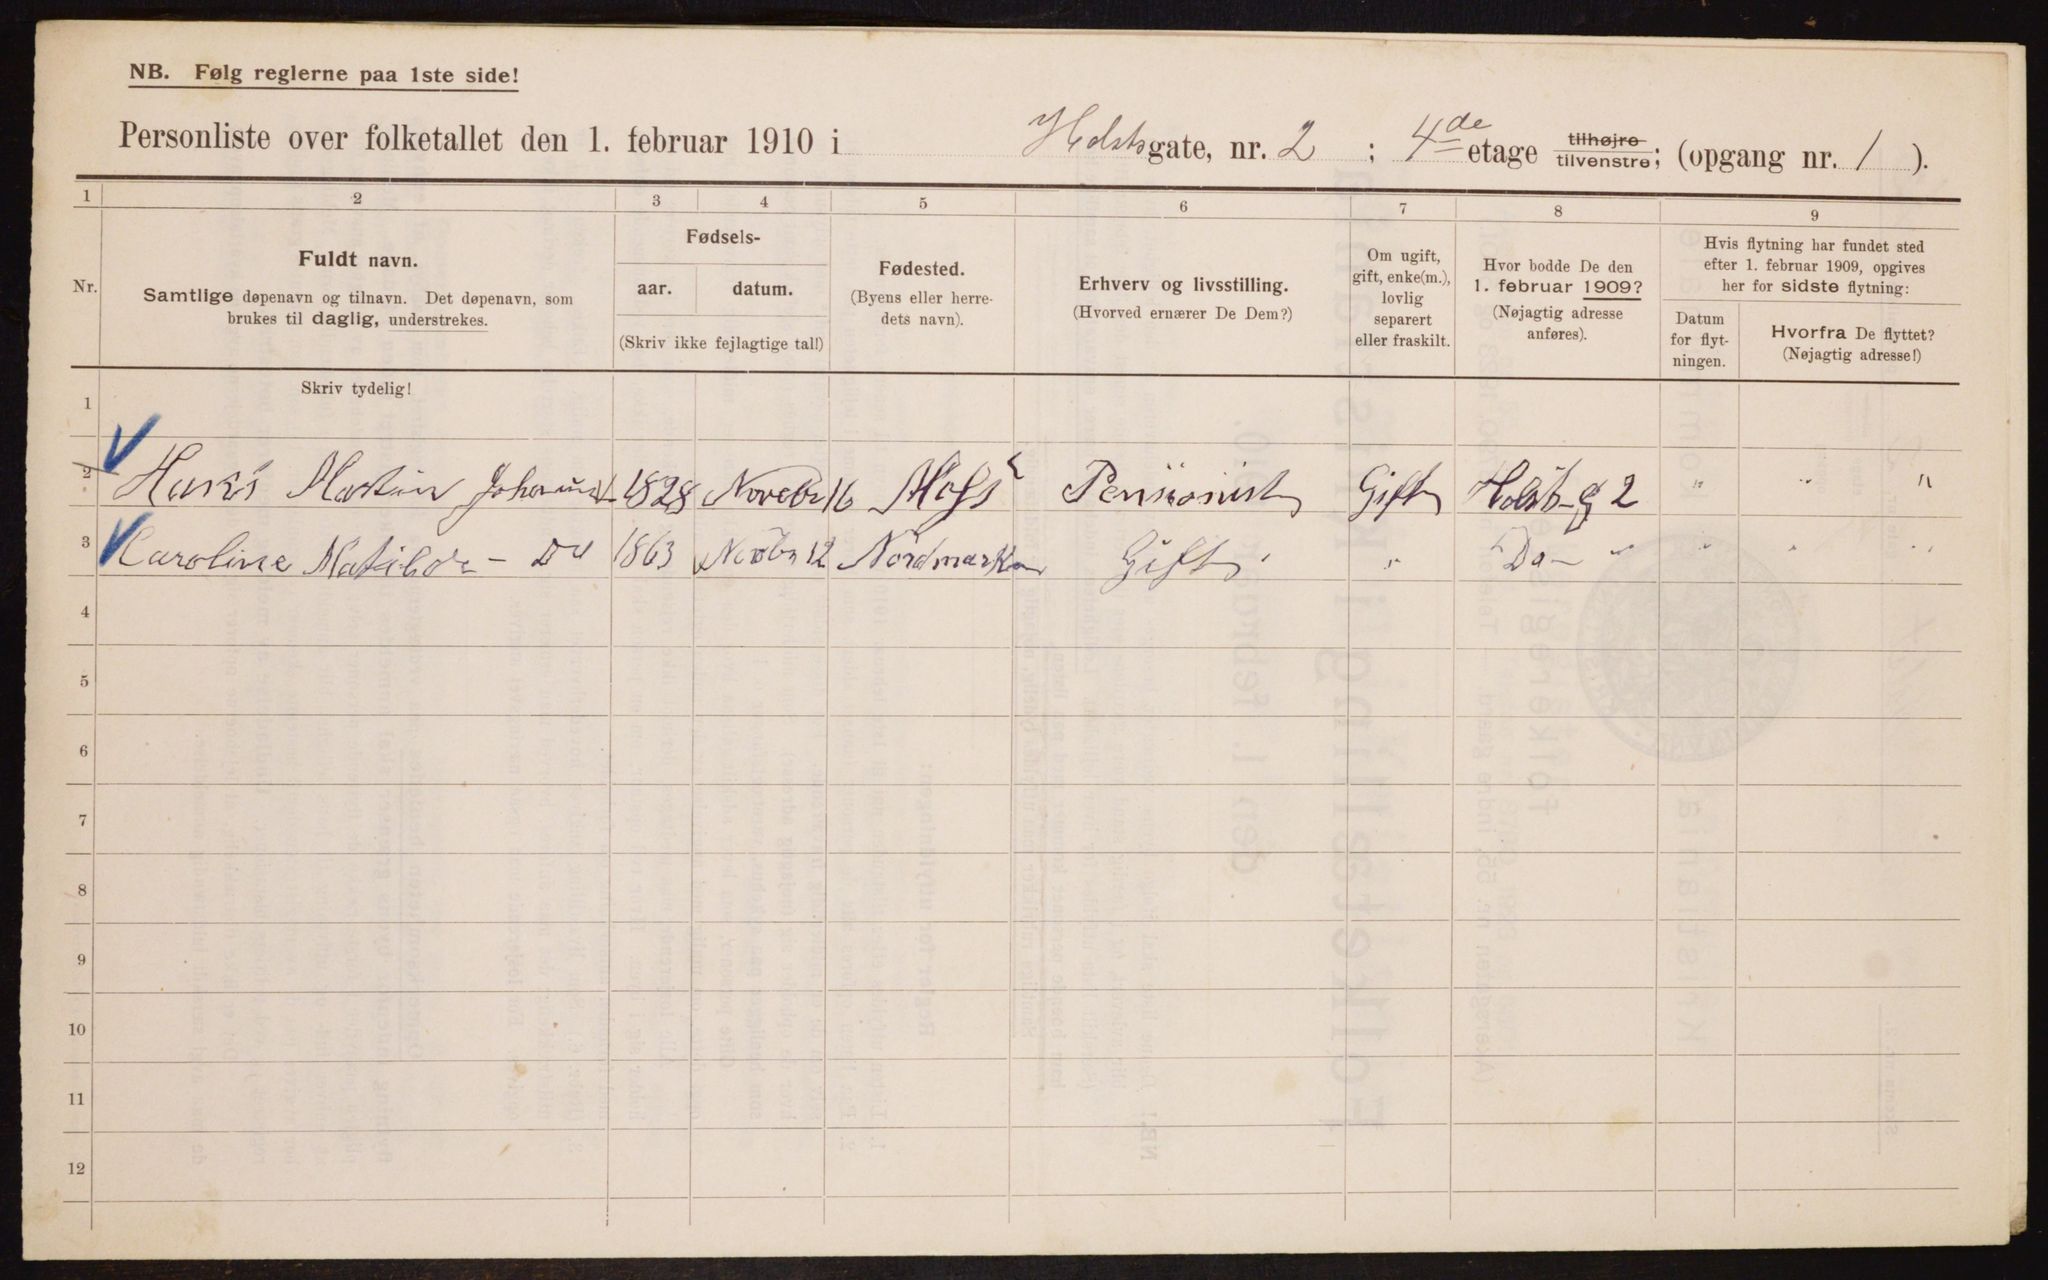 NB. Følg reglerne paa 1ste side!
Personliste over folketallet den 1. februar 1910 i Holstsgate, nr. 2 ; 4de etage tilhøjre tilvenstre; (opgang nr. 1 ).
1 2 3 4 5 6 7 8 9
Nr.
Fuldt navn.
Samtlige døpenavn og tilnavn. Det døpenavn, som
brukes til daglig, understrekes.
Fødsels-
aar. datum.
(Skriv ikke fejlagtige tal!)
Fødested.
(Byens eller herre-
dets navn).
Erhverv og livsstilling.
(Hvorved ernærer De Dem?)
Om ugift,
gift, enke(m.),
lovlig
separert
eller fraskilt.
Hvor bodde De den
1. februar 1909?
(Nøjagtig adresse
anføres).
Hvis flytning har fundet sted
efter 1. februar 1909, opgives
her for sidste flytning:
Datum
for flyt-
ningen.
Hvorfra De flyttet?
(Nøjagtig adresse!)
Skriv tydelig!
1
2 Martin 1828 16 Moss Pensionist Gift Holst-g 2 " " "
3 Caroline Matilde - Do 1863 12 Nordmarken Gift " Do - " " " "
4
5
6
7
8
9
10
11
12